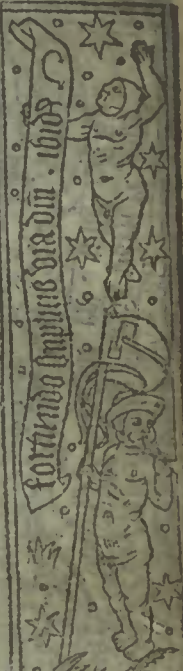 fortitudo simplicis via dñi . ibidē